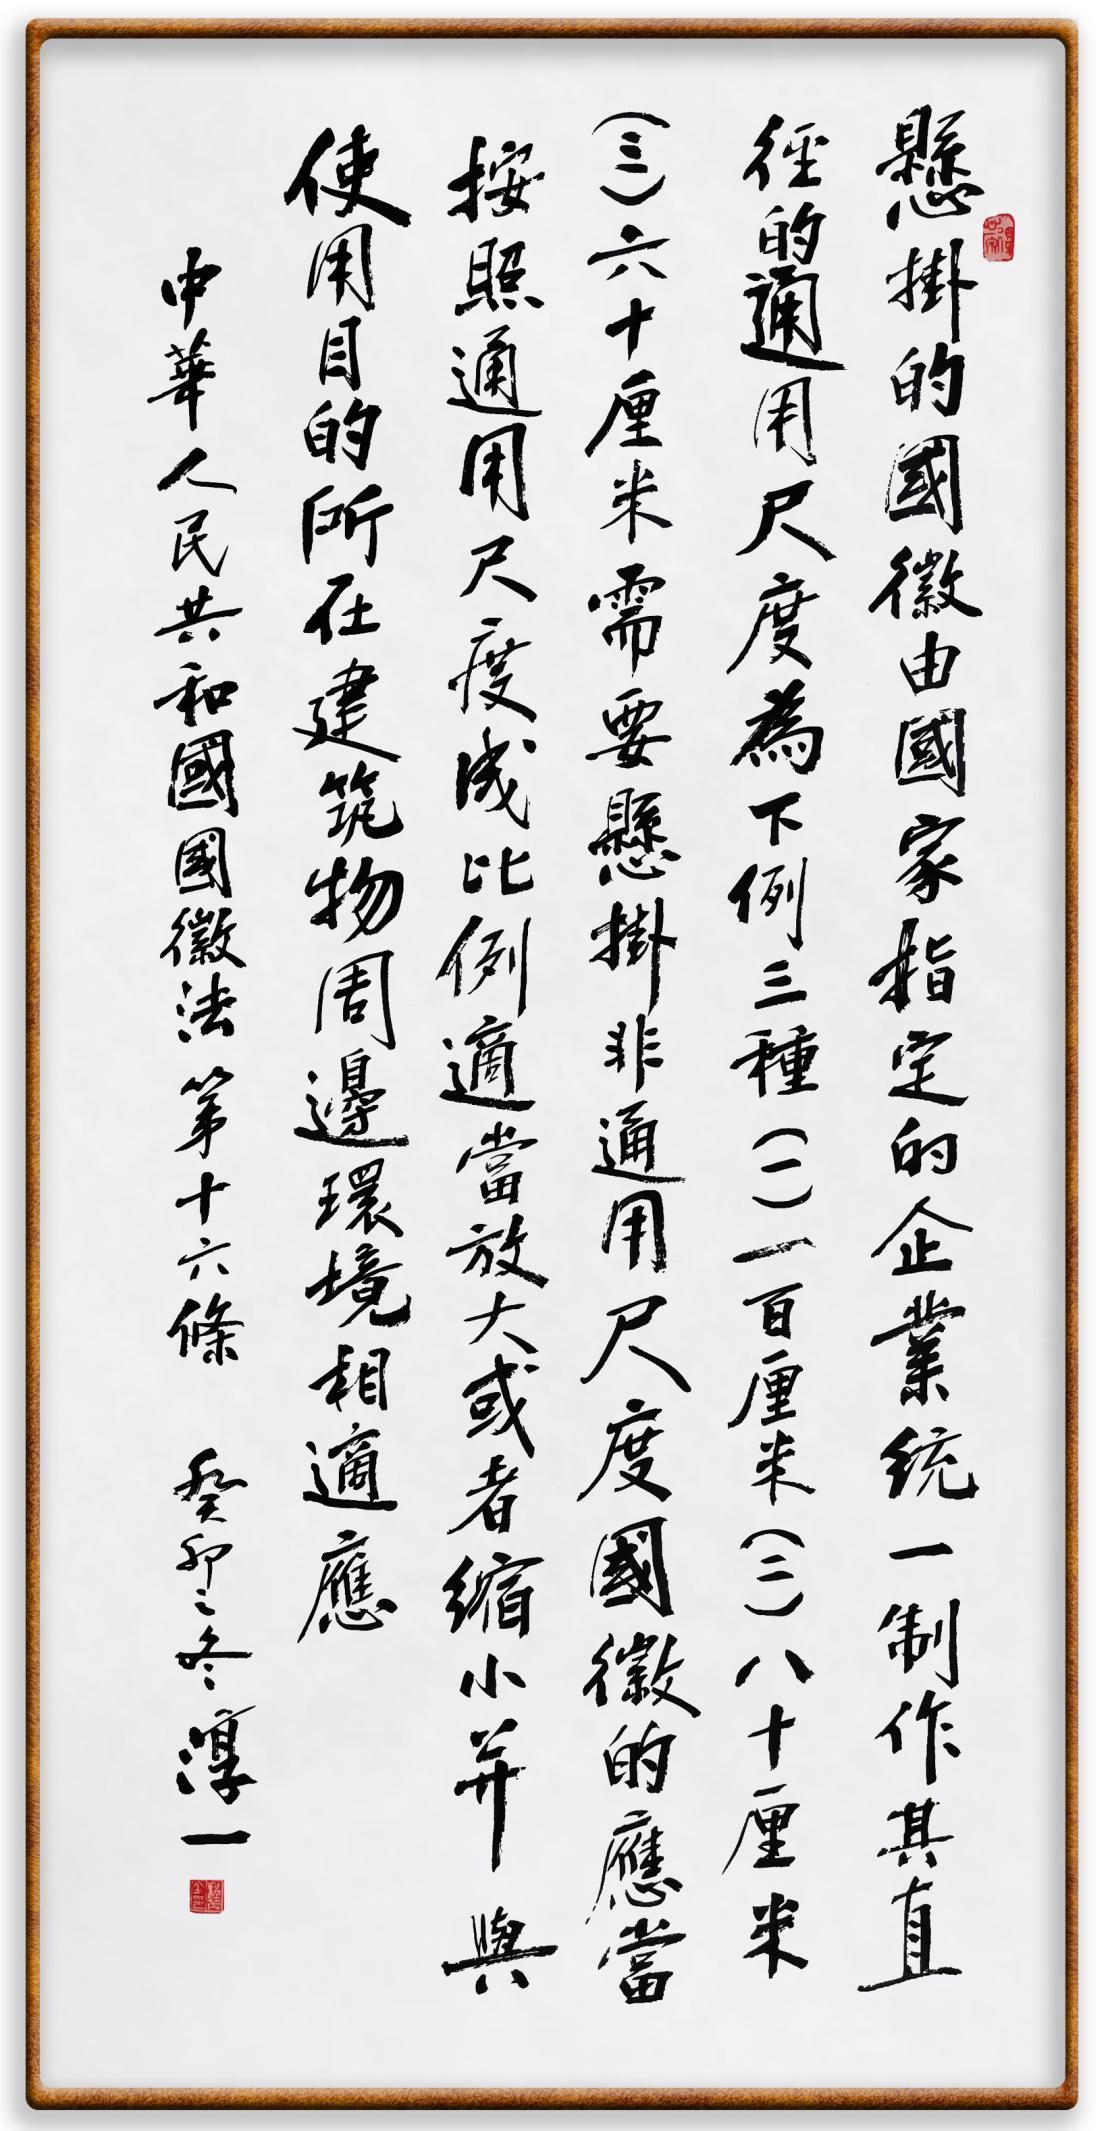 懸掛的國徽由國家指定的企業統一制作其直
徑的通用尺度為下例三種(一)一百厘米(二)八十厘米
(三)六十厘米需要懸掛非通用尺度國徽的應當
按照通用尺度成比例適當放大或者缩小并與
使用目的所在建筑物周邊環境相適應
中華人民共和國國徽法第十六條 癸卯之冬淳一